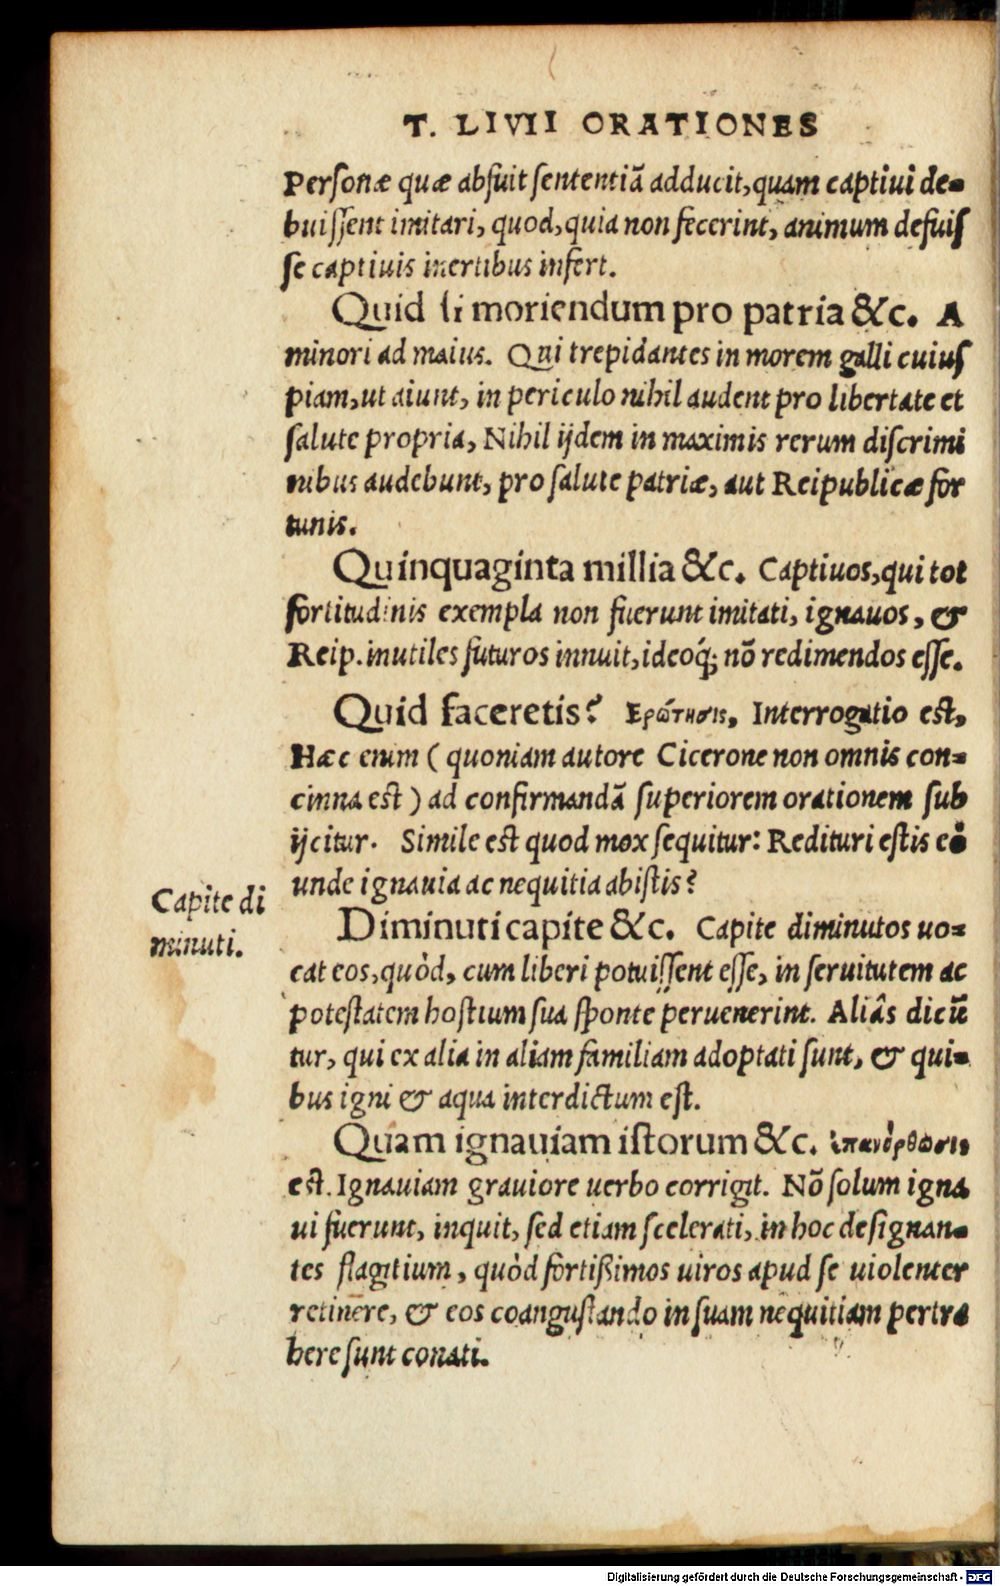 T. LIVII ORATIONES
Personæ quæ abfuit sententiã adducit, quam captiui de-
buissent imitari, quod, quia non fecerint, animum defuis
se captiuis inertibus infert.
Quid si moriendum pro patria &c. A
minori ad maius. Qui trepidantes in morem galli cuius
piam, ut aiunt, in periculo nihil audent pro libertate et
salute propria, Nihil ijdem in maximis rerum discrimi
nibus audebunt, pro salute patriæ, aut Reipublicæ for
tunis.
Quinquaginta millia &c. Captiuos, qui tot
fortitudinis exempla non fuerunt imitati, ignauos, &
Reip. inutiles futuros innuit, ideoq́; nõ redimendos esse.
Quid faceretis? Ερώτησις, Interrogatio est,
Hæc enim ( quoniam autore Cicerone non omnis con-
cinna est ) ad confirmandã superiorem orationem sub
ijcitur. Simile est quod mox sequitur: Redituri estis eò
unde ignauia ac nequitia abistis?
Capite di
minuti.
Diminuti capite &c. Capite diminutos uo-
cat eos, quòd, cum liberi potuissent esse, in seruitutem ac
potestatem hostium sua sponte peruenerint. Aliâs dicũ
tur, qui ex alia in aliam familiam adoptati sunt, & qui-
bus igni & aqua interdictum est.
Quam ignauiam istorum &c. ἐπανόρθωσις
est. Ignauiam grauiore uerbo corrigit. Nõ solum igna
ui fuerunt, inquit, sed etiam scelerati, in hoc designan-
tes flagitium, quòd fortißimos uiros apud se uiolenter
retinere, & eos coangustando in suam nequitiam pertra
here sunt conati.
Digitalisierung gefördert durch die Deutsche Forschungsgemeinschaft - DFG